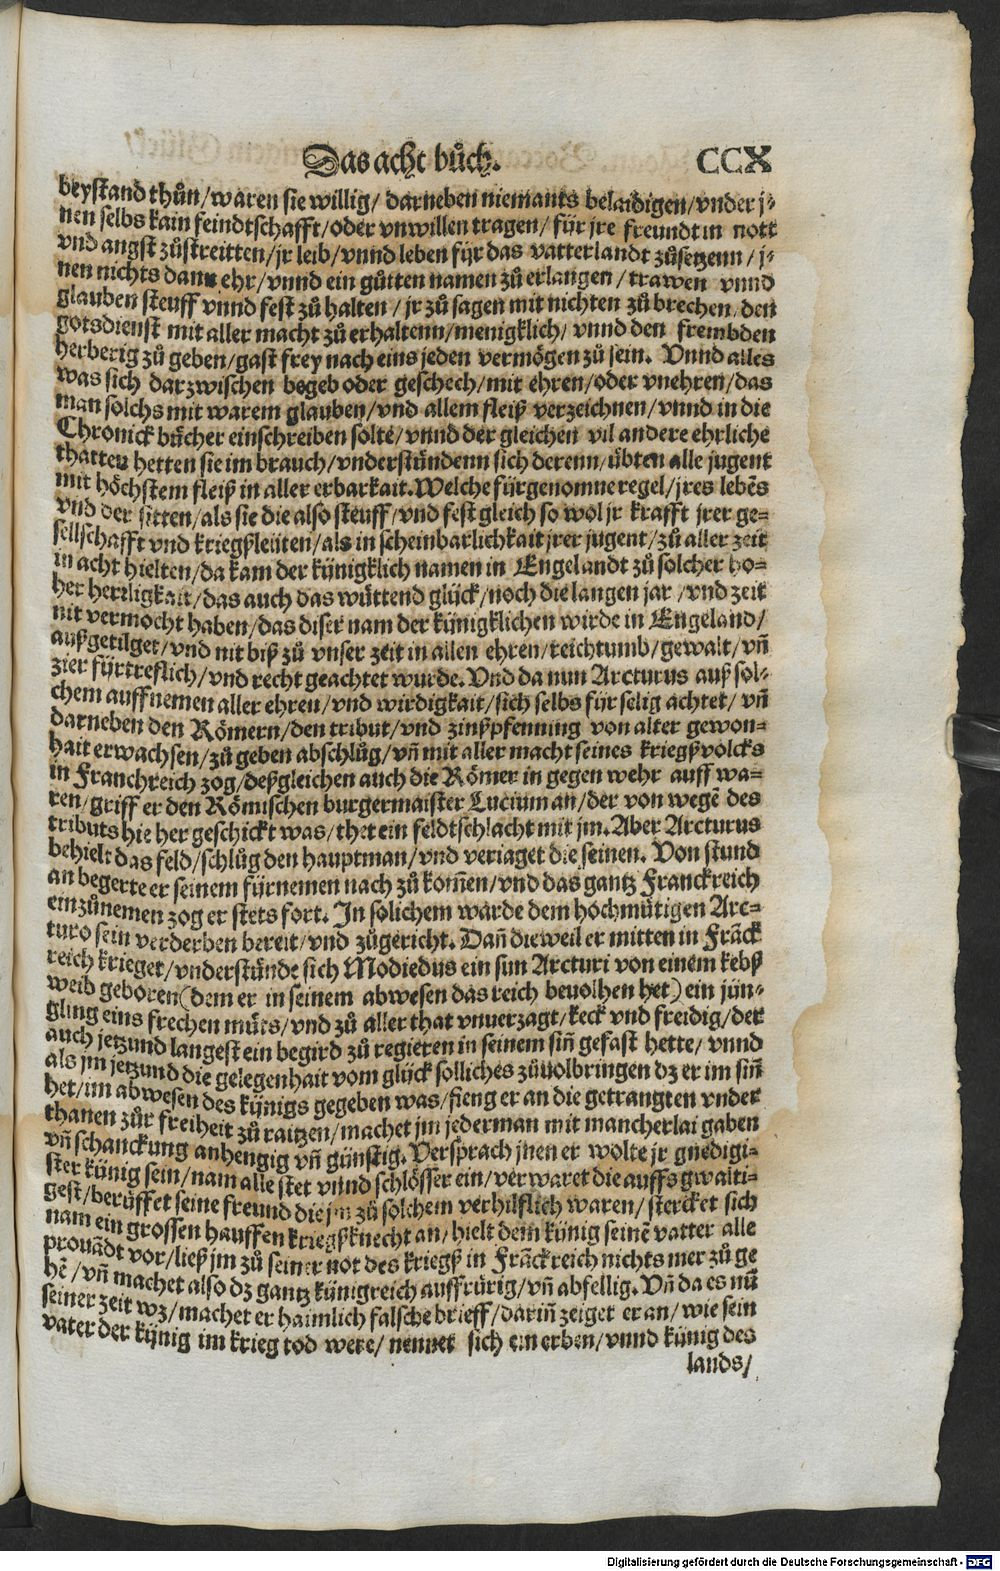 Das acht bůch.
CCX
beystand thůn/waren sie willig/ darneben niemants belaidigen/vnder j-
nen selbs kain feindtschafft/oder vnwillen tragen/ für jre freundt in nott
vnd angst zůstreitten/jr leib/vnnd leben für das vatterlandt zůsetzenn/j-
nen nichts dann ehr/vnnd ein gůtten namen zů erlangen/trawen vnnd
glauben steuff vnnd fest zů halten/jr zů sagen mit nichten zů brechen/den
gotsdienst mit aller macht zů erhaltenn/menigklich/vnnd den frembden
herberig zů geben/gast frey nach eins jeden vermögen zů sein. Vnnd alles
was sich darzwischen begeb oder geschech/mit ehren/oder vnehren/das
man solchs mit warem glauben/vnd allem fleiß verzeichnen/vnnd in die
Chronick bücher einschreiben solte/vnnd der gleichen vil andere ehrliche
thatten hetten sie im brauch/vnderstündenn sich derenn/übten alle jugent
mit höchstem fleiß in aller erbarkait. Welche fürgenomne regel/jres lebēs
vnd der sitten/als sie die also steuff/vnd fest gleich so wol jr krafft jrer ge=
sellschafft vnd kriegßleüten/als in scheinbarlichkait jrer jugent/zů aller zeit
in acht hielten/da kam der künigklich namen in Engelandt zů solcher ho=
her herrligkait/das auch das wüttend glück/noch die langen jar/vnd zeit
nit vermocht haben/das diser nam der künigklichen wirde in Engeland/
außgetilget/vnd nit biß zů vnser zeit in allen ehren/reichtumb/gewalt/vn̄
zier fürtreflich/vnd recht geachtet wurde. Vnd da nun Arcturus auß sol-
chem auffnemen aller ehren/vnd wirdigkait/sich selbs für selig achtet/vn̄
darneben den Römern/den tribut/vnd zinßpfenning von alter gewon=
hait erwachsen/zů geben abschlůg/vn̄ mit aller macht seines kriegßvolcks
in Franckreich zog/deßgleichen auch die Römer in gegen wehr auff wa=
ren/griff er den Römischen burgermaister Lucium an/der von wegē des
tributs hie her geschickt was/thet ein feldtschlacht mit jm. Aber Arcturus
behielt das feld/schlůg den hauptman/vnd veriaget die seinen. Von stund
an begerte er seinem fürnemen nach zů kom̄en/vnd das gantz Franckreich
einzůnemen zog er stets fort. In solichem warde dem hochmütigen Arc=
turo sein verderben bereit/vnd zůgericht. Dan̄ dieweil er mitten in Frāck
reich krieget/vnderstünde sich Modiedus ein sun Arcturi von einem kebß
weib geboren (dem er in seinem abwesen das reich beuolhen het) ein jün-
gling eins frechen můts/vnd zů aller that vnuerzagt/keck vnd freidig/der
auch jetzund langest ein begird zů regieren in seinem sin̄ gefast hette/vnnd
als jm jetzund die gelegenhait vom glück solliches zůuolbringen dz er im sin̄
het/im abwesen des künigs gegeben was/fieng er an die getrangten vnder
thanen zůr freiheit zů raitzen/machet jm jederman mit mancherlai gaben
vn̄ schanckung anhengig vn̄ günstig. Versprach jnen er wolte jr gnedigi-
ster künig sein/nam alle stet vnnd schlösser ein/verwaret die auffs gwalti-
gest/berüffet seine freund die jm zů solchem verhilflich waren/stercket sich
nam ein grossen hauffen kriegßknecht an/hielt dem künig seinē vatter alle
prouādt vor/ließ jm zů seiner not des kriegß in Frāckreich nichts mer zů ge
hē/vn̄ machet also dz gantz künigreich auffrürig/vn̄ abfellig. Vn̄ da es nū
seiner zeit wz/machet er haimlich falsche brieff/darin̄ zeiget er an/wie sein
vater der künig im krieg tod were/nennet sich ein erben/vnnd künig des
lands/
Digitalisierung gefördert durch die Deutsche Forschungsgemeinschaft - DFG